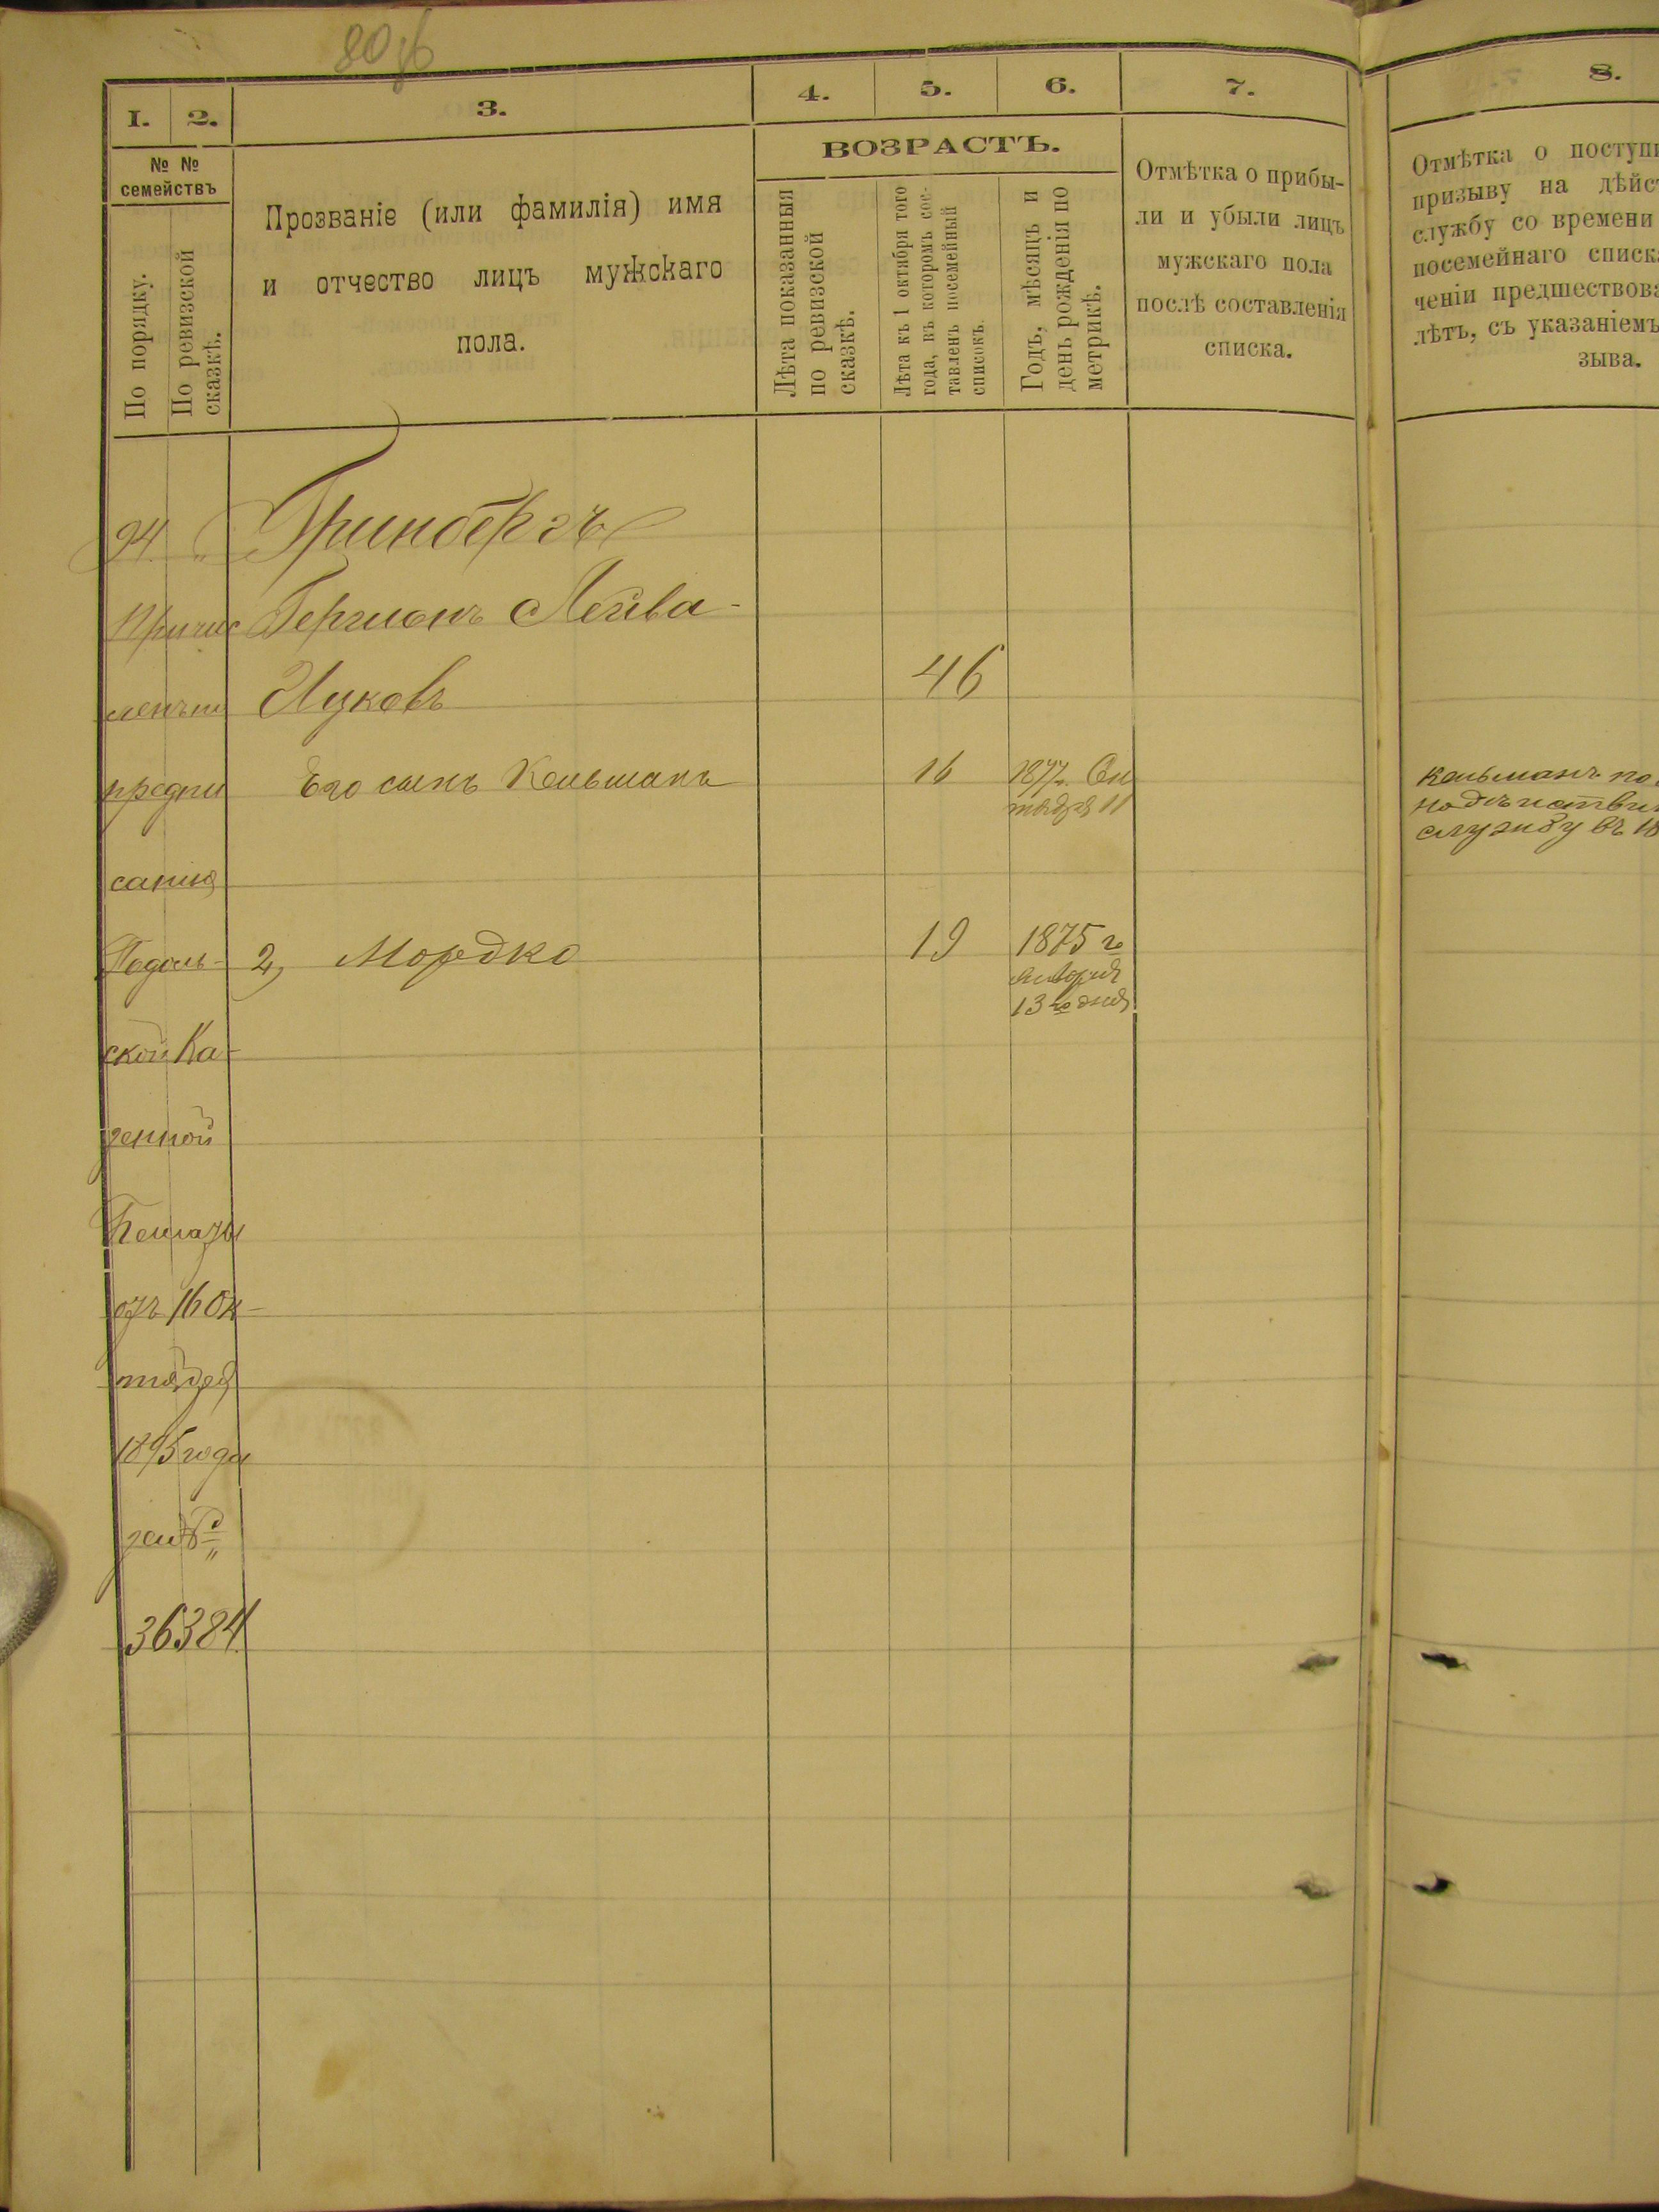 80 об
1. 2. 3. 4. 5. 6. 7. 8.
№ №
семействъ
По порядку.
По ревизской
сказкѣ.
Прозваніе (или фамилія) имя
и отчество лицъ мужскаго
пола.
ВОЗРАСТЪ.
Лѣта показанныя
по ревизской
сказкѣ.
Лѣта къ 1 октября того
года, въ которомъ сос-
тавленъ посемейный
списокъ.
Годъ, мѣсяцъ и
день рожденія по
метрикѣ.
Отмѣтка о прибы-
ли и убыли лицъ
мужскаго пола
послѣ составленія
списка.
Отмѣтка о поступ
призыву на дѣйс
службу со времени
посемейнаго списк
ченіи предшествов
лѣтъ, съ указаніемъ
зыва.
94 " Гринбергъ
Причис
Гершонъ Лейва-
ленъ по
Ицковъ 46
предпи
Его сынъ Кельманъ 16 1877г. Ок
тября 11
санію
2, Мордко 19 1875 го
января
13 го дня
Подоль-
ской Ка-
зенной
Палаты
отъ 16 Ок-
тября
1895 года
за №
36384.
Кельманъ по
на дѣйстви
службу въ 18